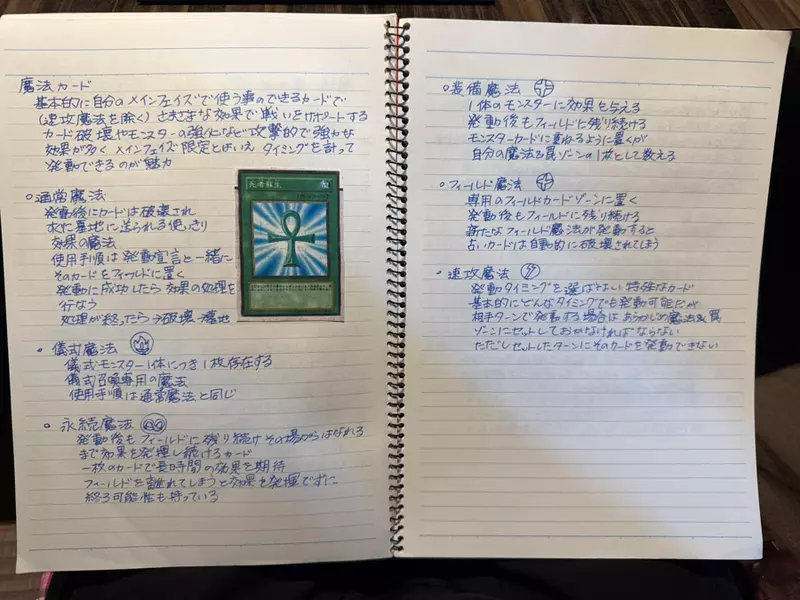 魔法カード
基本的に自分のメインフェイズで使う事のできるカードで
(速攻魔法を除く) さまざまな効果で戦いをサポートする
カード破壊やモンスターの強化など攻撃的で強力な
効果が多く メインフェイズ限定とはいえ タイミングを計って
発動できるのが魅力
○通常魔法
発動後にカードは破壊され
次に墓地に送られる使いきり
効果の魔法
使用手順は発動宣言と一緒に
そのカードをフィールドに置く
発動に成功したら効果の処理を
行なう
処理が終ったら→破壊→墓地
死者蘇生
・儀式魔法
儀式モンスター1体につき1枚存在する
儀式召喚専用の魔法
使用手順は通常魔法と同じ
・永続魔法
発動後もフィールドに残り続けその場からはなれる
まで効果を発揮し続けるカード
一枚のカードで長時間の効果を期待
フィールドを離れてしまうと効果を発揮できずに
終る可能性も持っている
○装備魔法
1体のモンスターに効果を与える
発動後もフィールドに残り続ける
モンスターカードに重ねるように置くが
自分の魔法&罠ゾーンの1枚として数える
○フィールド魔法
専用のフィールドカードゾーンに置く
発動後もフィールドに残り続ける
新たなフィールド魔法が発動すると
古いカードは自動的に破壊されてしまう
○速攻魔法
発動タイミングを選ばない特殊なカード
基本的にどんなタイミングでも発動可能だが
相手ターンで発動する場合はあらかじめ魔法&罠
ゾーンにセットしておかなければならない
ただしセットしたターンにそのカードを発動できない